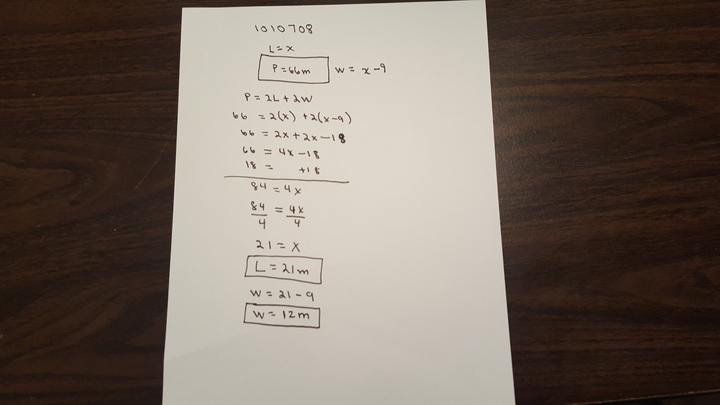 1010708
L = x
P = 66m W = x - 9
P = 2L + 2W
66 = 2(x) + 2(x-9)
66 = 2x + 2x - 18
66 = 4x - 18
18 = +18
84 = 4x
84/4 = 4x/4
21 = x
L = 21m
W = 21 - 9
W = 12m